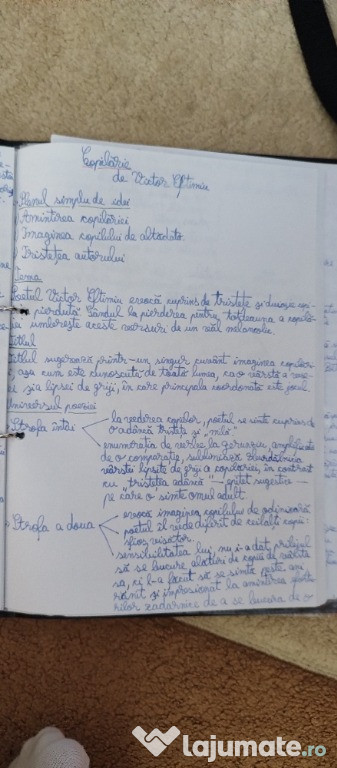 Copilărie
de Victor Eftimiu
Planul simplu de idei
Amintirea copilăriei
Imaginea copilului de altădată
Tristețea autorului
Tema
Poetul Victor Eftimiu evocă cuprins de tristețe și duioșie
pierdută. Gândul la pierderea pentru totdeauna a copilă-
umbrește aceste versuri de un văl melancolic.
Titlul
Titlul sugerează printr-un singur cuvânt imaginea copilări-
așa cum este cunoscută de toată lumea, ca o vârstă a
și a lipsei de griji, în care principala coordonată este jocul.
Universul poeziei
Strofa întâi
la vederea copiilor, poetul se simte cuprins de
"o adâncă tristeță și milă"
enumerația de verbe la gerunziu, amplificată
de o comparație, subliniază zburdălnicia
vârstei lipsite de griji a copilăriei, în contrast
cu "tristețea adâncă" - epitet sugestiv -
pe care o simte omul adult.
Strofa a doua
evocă imaginea copilului de odinioară
poetul îl vede diferit de ceilalți copii
sfios, visător.
sensibilitatea lui nu i-a dat prilejul
să se bucure alături de copiii de vârsta
sa, ci l-a făcut să se simtă
și impresionat la amintirea
zadarnice de a se bucura de o
lajumate.ro